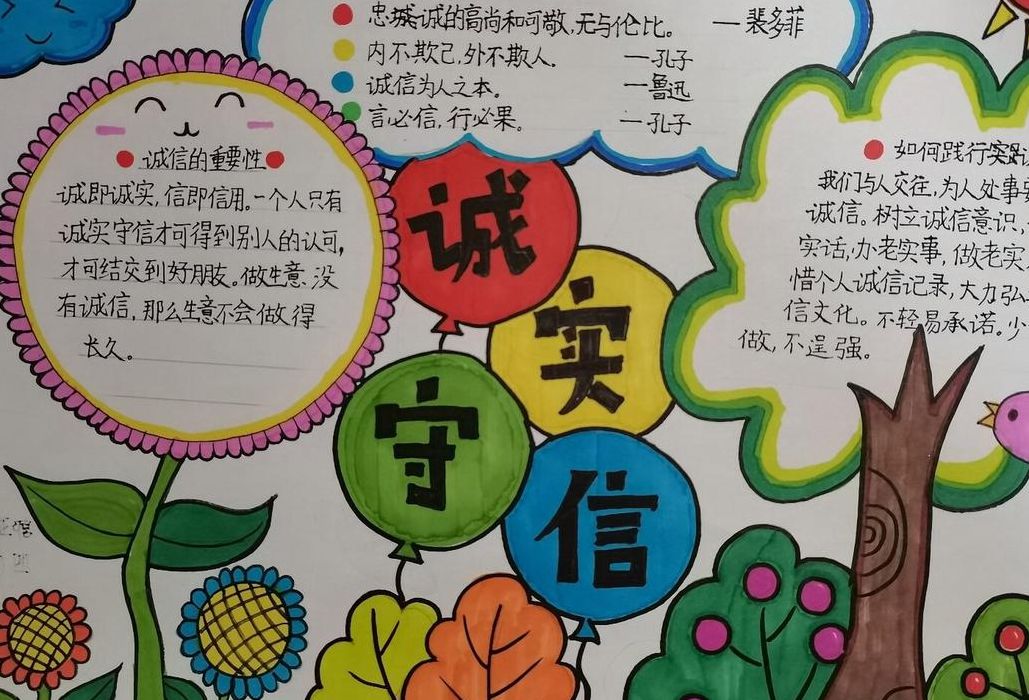 忠诚诚的高尚和可敬,无与伦比。 —裴多菲
内不欺己,外不欺人。 —孔子
诚信为人之本。 —鲁迅
言必信,行必果。 —孔子
诚信的重要性
诚即诚实,信即信用。一个人只有
诚实守信才可得到别人的认可,
才可结交到好朋友。做生意、没
有诚信,那么生意不会做得
长久。
诚
实
守
信
如何践行实践
我们与人交往,为人处事
诚信。树立诚信意识,
实话,办老实事,做老实
惜个人诚信记录,大力弘
信文化。不轻易承诺。少
做,不逞强。